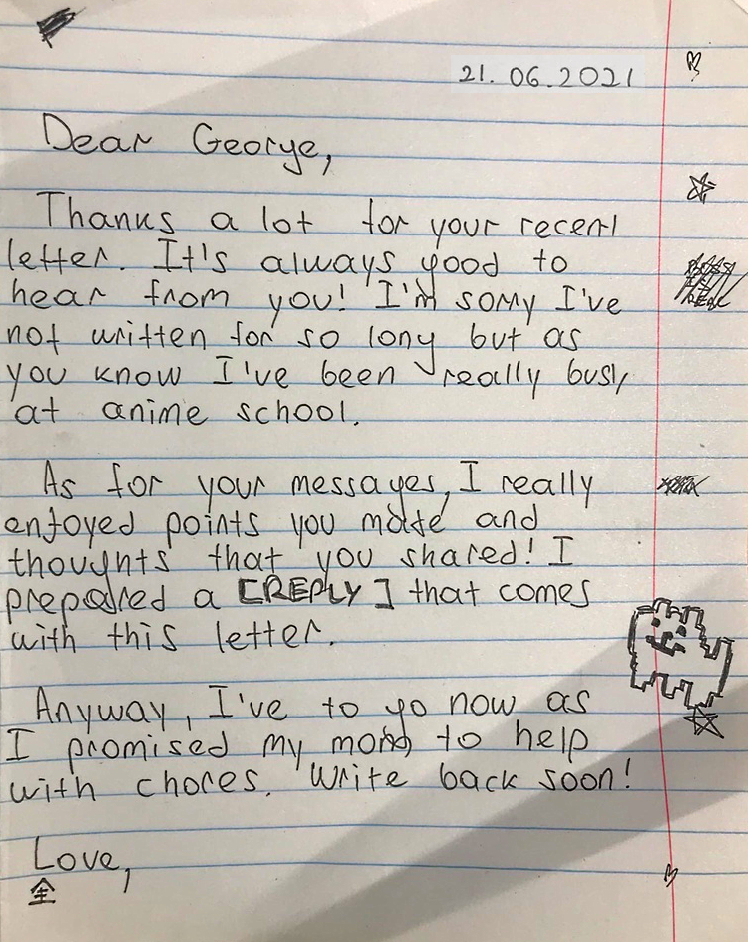 21.06.2021
Dear George,
Thanks a lot for your recent
letter. It's always good to
hear from you! I'm sorry I've
not written for so long but as
you know I've been really busy
at anime school.
As for your messages, I really
enjoyed points you made and
thoughts that you shared! I
prepared a [REPLY] that comes
with this letter.
Anyway, I've to go now as
I promised my mom to help
with chores. Write back soon!
Love,
全